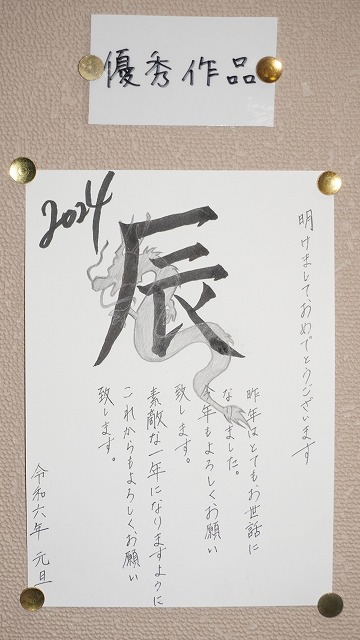 優秀作品
2024
辰
明けましておめでとうございます
昨年はとてもお世話に
なりました。
今年もよろしくお願い
致します。
素敵な一年になりますように
これからもよろしくお願い
致します。
令和六年 元旦